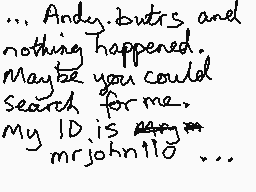 ... Andy.butrs and
nothing happened.
Maybe you could
search for me.
My ID is
mrjohn110 ...